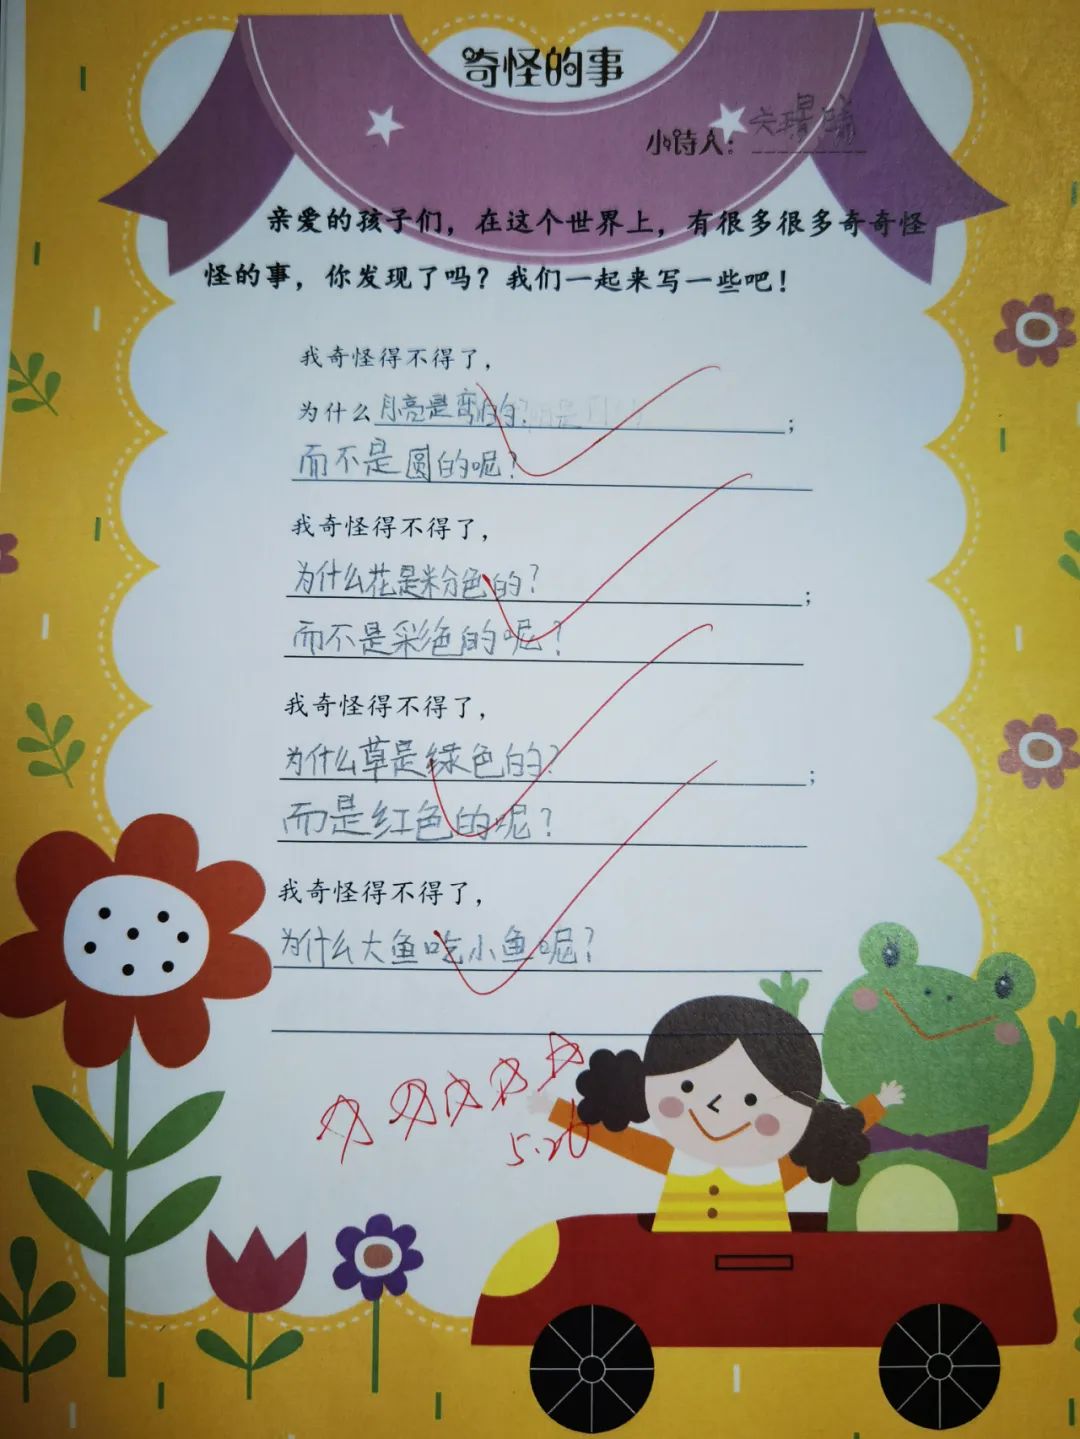 奇怪的事
小诗人：
亲爱的孩子们，在这个世界上，有很多很多奇奇怪
怪的事，你发现了吗？我们一起来写一些吧！
我奇怪得不得了，
为什么月亮是弯的？；
而不是圆的呢？
我奇怪得不得了，
为什么花是粉色的？；
而不是彩色的呢？
我奇怪得不得了，
为什么草是绿色的？；
而是红色的呢？
我奇怪得不得了，
为什么大鱼吃小鱼呢？
5.26